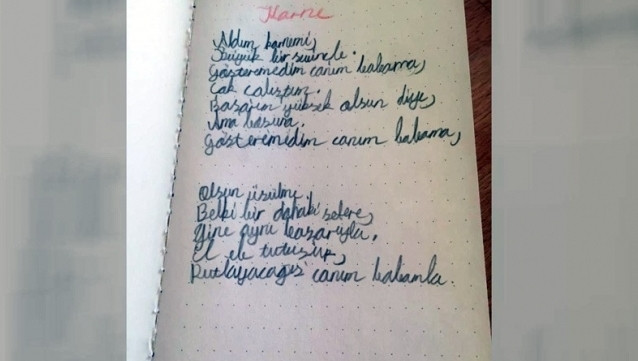 Karne
Aldım karnemi,
Büyük bir sevincle.
Gösteremedim canım babama,
Cok calıştım.
Başarım yüksek olsun diye,
Ama
Gösteremedim canım babama,
Olsun üsülme
Belki bir dahaki sefere,
Yine aynı başarıyla,
El ele tutuşup,
Kutlayacağıs canım babamla.